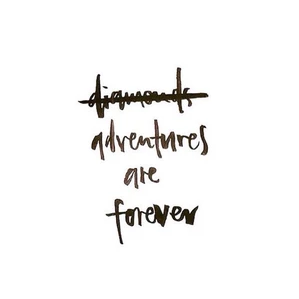 diamonds
adventures
are
forever